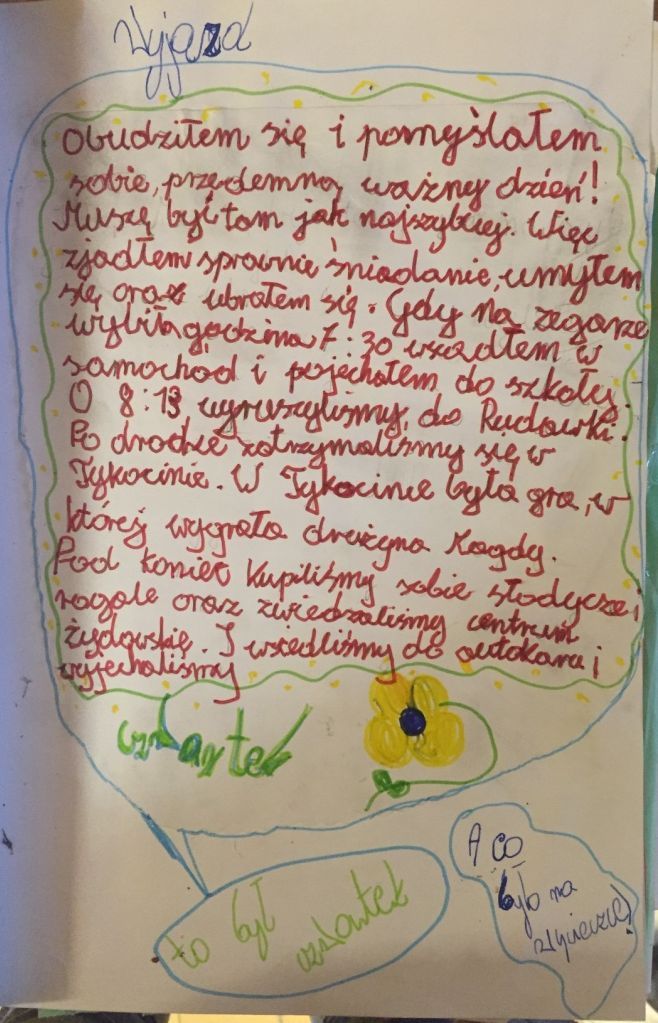 Wyjazd
obudziłem się i pomyślałem
sobie, przedemną ważny dzień!
Muszę być tam jak najszybciej. Więc
zjadłem sprawnie śniadanie, umyłem
się oraz ubrałem się. Gdy na zegarze
wybiła godzina 7:30 wsiadłem w
samochód i pojechałem do szkoły.
O 8:13 wyruszyliśmy, do Rudawki.
Po drodze zatrzymaliśmy się w
Tykocinie. W Tykocinie była gra, w
której wygrała drużyna Magdy.
Pod koniec kupiliśmy sobie słodycze i
rogale oraz zwiedzaliśmy centrum
żydowskię. I wsiedliśmy do autokaru i
wyjechaliśmy
czwartek
to był
czwartek
A co
było na